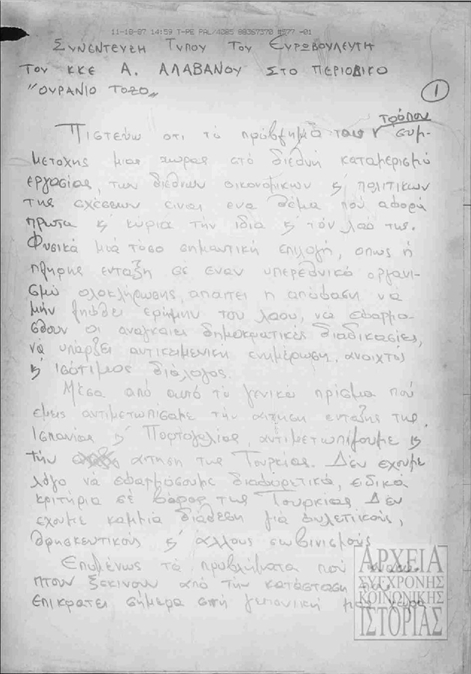 11-18-87 14:59 T-PE PAL/
ΣΥΝΕΝΤΕΥΞΗ ΤΥΠΟΥ ΤΟΥ ΕΥΡΩΒΟΥΛΕΥΤΗ
ΤΟΥ ΚΚΕ Α. ΑΛΑΒΑΝΟΥ ΣΤΟ ΠΕΡΙΟΔΙΚΟ
"ΟΥΡΑΝΙΟ ΤΟΞΟ"
1
τρόπου
Πιστεύω οτι το πρόβλημα του συμ-
μετοχης μιας χωρας στο διεθνή καταμερισμό
εργασίας, των διεθνων οικονομικων & πολιτικων
της σχέσεων είναι ενα θέμα που αφορά
πρωτα & κυρια την ιδια & τον λαό της.
Φυσικά μιά τόσο σημαντική επιλογή, οπως ή
πληρης ενταξη σε εναν υπερεθνικό οργανι-
σμο ολοκλήρωσης απαιτει η απόφαση να
μην ληφθεί ερημην του λαου, να εφαρμο-
σθουν οι αναγκαιες δημοκρατικές διαδικασίες,
να υπάρξει αντικειμενικη ενημέρωση, ανοιχτός
& ισότιμος διάλογος.
Μέσα από αυτο το γενικό πρισμα που
εμεις αντιμετωπισαμε την αιτηση ενταξης της
Ισπανίας & Πορτογαλίας, αντιμετωπιζουμε &
την αιτηση της Τουρκιας. Δεν εχουμε
λόγο να εφαρμοσουμε διαφορετικά, ειδικα
κριτήρια σε βαρος της Τουρκιας. Δεν
εχουμε καμμια διαθεση για φυλετικους,
θρησκευτικούς & άλλους σωβινισμούς
Επομένως τα προβλήματα που
πτουν ξεκινουν από την κατάσταση που
επικρατει σήμερα στη γειτονική μας χωρα
ΑΡΧΕΙΑ
ΣΥΓΧΡΟΝΗΣ
ΚΟΙΝΩΝΙΚΗΣ
ΙΣΤΟΡΙΑΣ